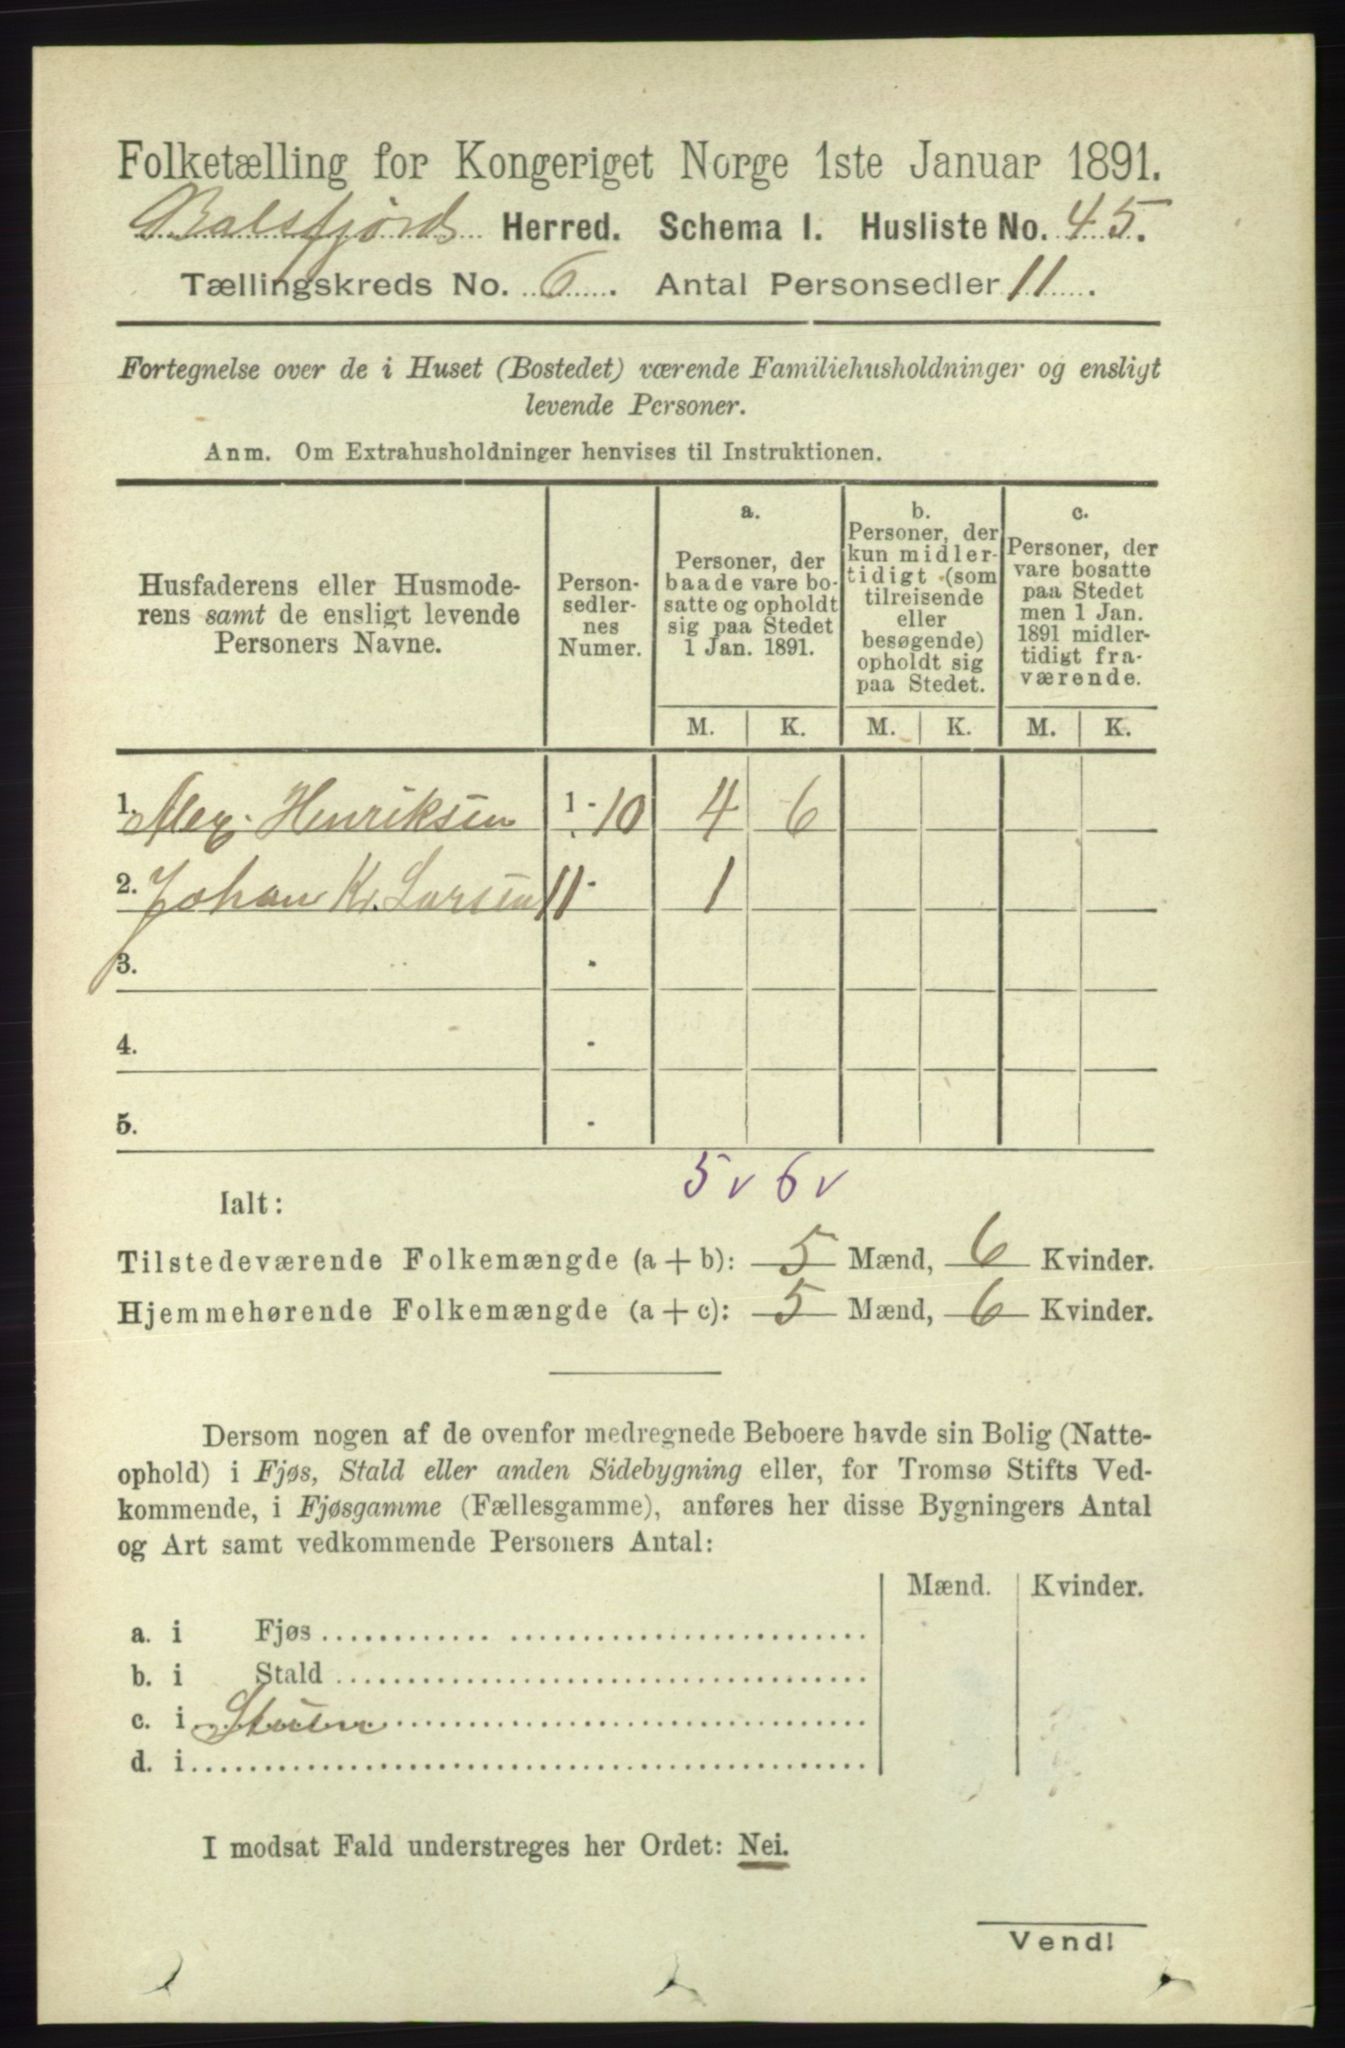 Folketælling for Kongeriget Norge 1ste Januar 1891.
Balsfjord Herred. Schema I. Husliste No. 45.
Tællingskreds No. 6. Antal Personsedler 11.
Fortegnelse over de i Huset (Bostedet) værende Familiehusholdninger og ensligt
levende Personer.
Anm. Om Extrahusholdninger henvises til Instruktionen.
Husfaderens eller Husmode-
rens samt de ensligt levende
Personers Navne.
Person-
sedler-
nes
Numer.
a.
Personer, der
baade vare bo-
satte og opholdt
sig paa Stedet
1 Jan. 1891.
b.
Personer, der
kun midler-
tidigt (som
tilreisende
eller
besøgende)
opholdt sig
paa Stedet.
c.
Personer, der
vare bosatte
paa Stedet
men 1 Jan.
1891 midler-
tidigt fra-
værende.
M. K. M. K. M. K.
1. Alex. Henriksen 1-10 4 6
2. Johan Kr. Larsen 11 - 1
3. -
4. -
5. -
5 v 6 v
Ialt:
Tilstedeværende Folkemængde (a + b): 5 Mænd, 6 Kvinder.
Hjemmehørende Folkemængde (a + c): 5 Mænd, 6 Kvinder.
Dersom nogen af de ovenfor medregnede Beboere havde sin Bolig (Natte-
ophold) i Fjøs, Stald eller anden Sidebygning eller, for Tromsø Stifts Ved-
kommende, i Fjøsgamme (Fællesgamme), anføres her disse Bygningers Antal
og Art samt vedkommende Personers Antal:
Mænd. Kvinder.
a. i Fjøs
b. i Stald
c. i
d. i
I modsat Fald understreges her Ordet: Nei.
Vend!